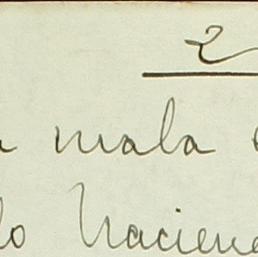 2
mala
lo hacien